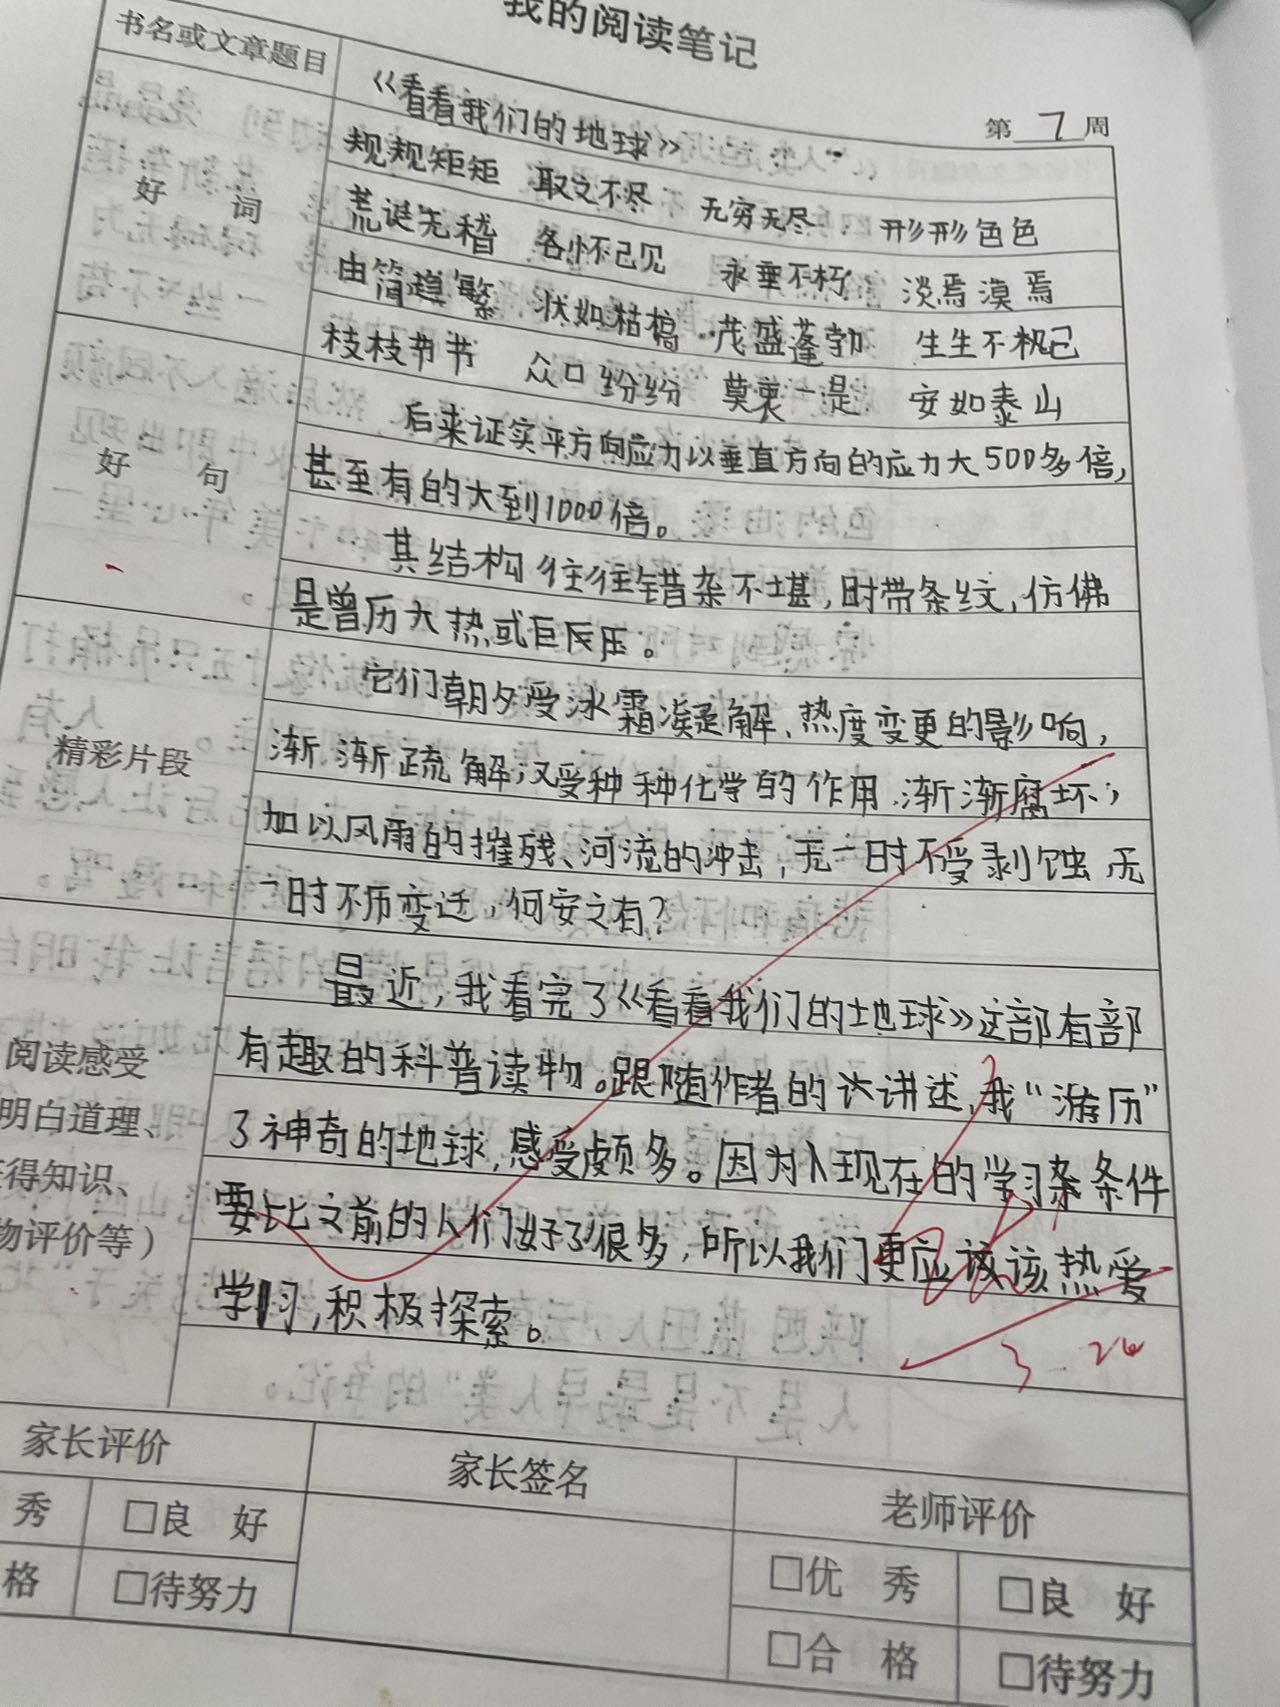 我的阅读笔记
第 7 周
书名或文章题目
《看看我们的地球》
好 词
规规矩矩 取之不尽 无穷无尽 形形色色
荒诞无稽 各怀己见 永垂不朽 淡焉漠焉
由简趋繁 状如枯槁 茂盛蓬勃 生生不机己
枝枝节节 众口纷纷 莫衷一是 安如泰山
好 句
后来证实平方向应力以垂直方向的应力大500多倍,
甚至有的大到1000倍。
其结构往往错杂不堪,时带条纹,仿佛
是曾历大热或巨压。
精彩片段
它们朝夕受冰霜凝解、热度变更的影响,
渐渐疏解;又受种种化学的作用,渐渐腐坏;
加以风雨的摧残、河流的冲击,无一时不受剥蚀,无
一时不历变迁,何安之有?
阅读感受
明白道理、
得知识、
物评价等)
最近,我看完了《看看我们的地球》这部有部
有趣的科普读物。跟随作者的讲述,我“游历”
了神奇的地球,感受颇多。因为现在的学习条件
要比之前的人们好了很多,所以我们更应该热爱
学习,积极探索。
3.26
家长评价
家长签名
老师评价
秀
□良 好
格
□待努力
□优 秀
□良 好
□合 格
□待努力